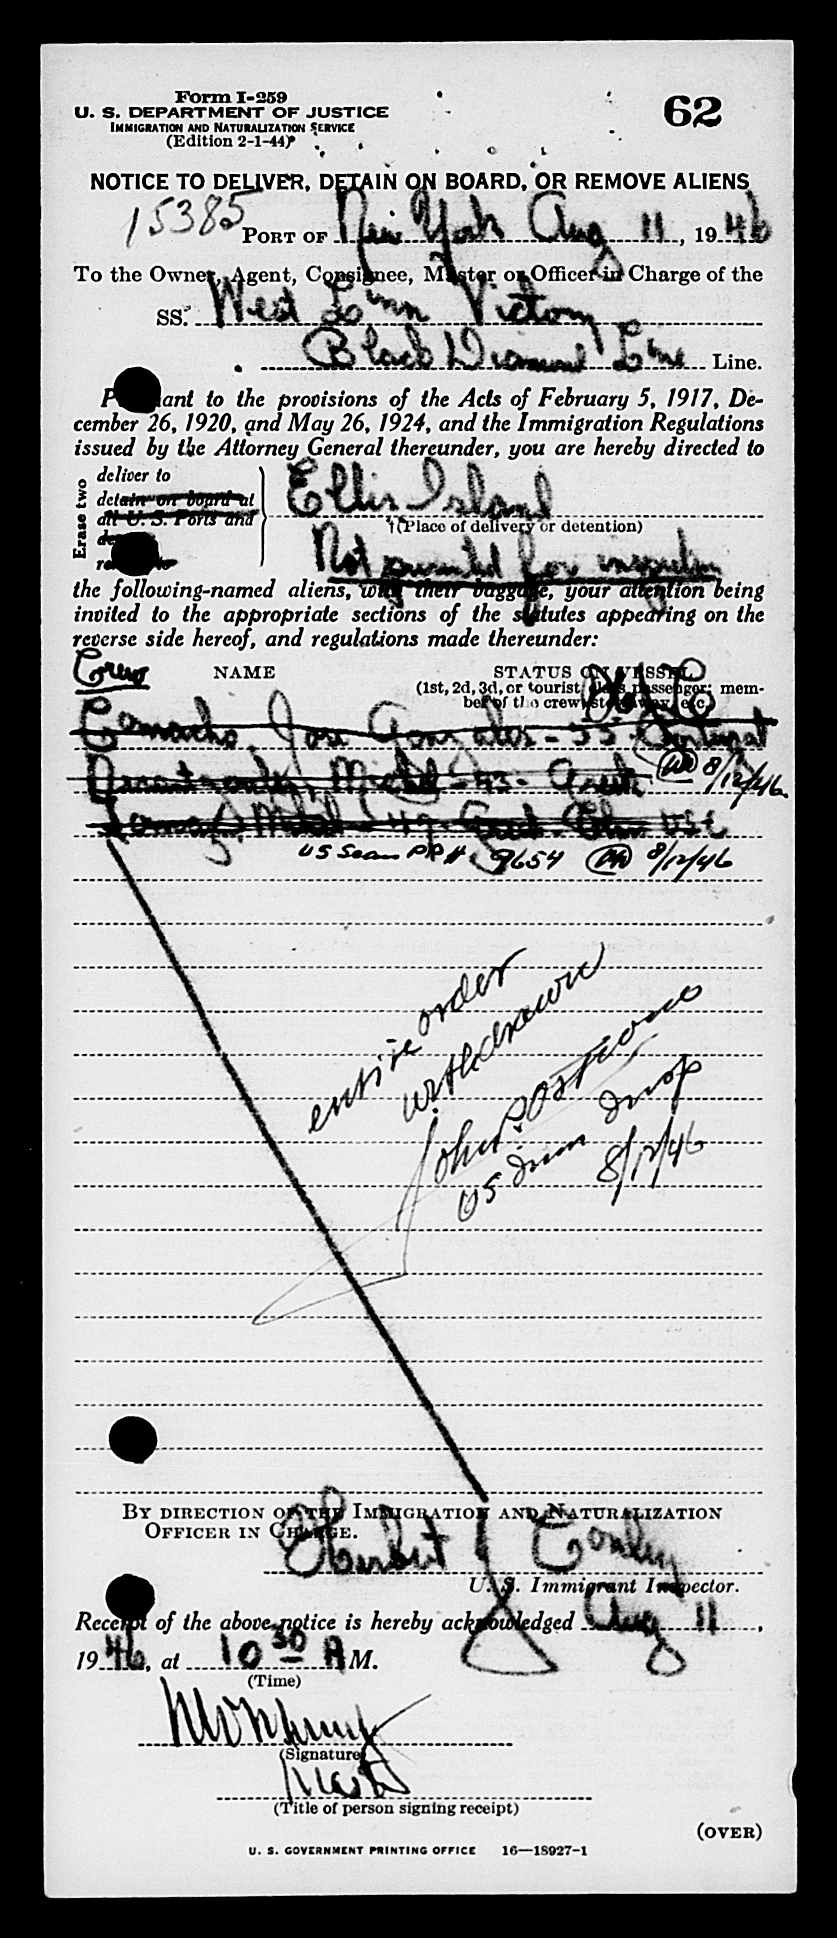 Form I-259
U. S. DEPARTMENT OF JUSTICE
IMMIGRATION AND NATURALIZATION SERVICE
(Edition 2-1-44)
62
NOTICE TO DELIVER, DETAIN ON BOARD, OR REMOVE ALIENS
15385
PORT OF New York Aug 11, 1946
To the Owner, Agent, Consignee, Master or Officer in Charge of the
SS. West Linn Victory
Black Diamond Line Line.
Pursuant to the provisions of the Acts of February 5, 1917, De-
cember 26, 1920, and May 26, 1924, and the Immigration Regulations
issued by the Attorney General thereunder, you are hereby directed to
Erase two
deliver to
detain on board at
all U. S. Ports and
Ellis Island
†(Place of delivery or detention)
Not for
the following-named aliens, with their baggage, your attention being
invited to the appropriate sections of the statutes appearing on the
reverse side hereof, and regulations made thereunder:
Crew
NAME
STATUS ON VESSEL
(1st, 2d, 3d, or tourist class passenger; mem-
ber of the crew, stowaway, etc.)
Camacho, Jose Gonzales - 55 - Portugal
Michel - 43 - Greek 8/12/46
49 - Greek
US Seam PP # 9654 8/12/46
entire order
withdrawn
John P.
US Imm Insp
8/12/46
BY DIRECTION OF THE IMMIGRATION AND NATURALIZATION
OFFICER IN CHARGE.
Herbert Conley
U. S. Immigrant Inspector.
Receipt of the above notice is hereby acknowledged Aug 11,
1946, at 10 30 A M.
(Time)
(Signature)
(Title of person signing receipt)
(OVER)
U. S. GOVERNMENT PRINTING OFFICE 16—18927-1